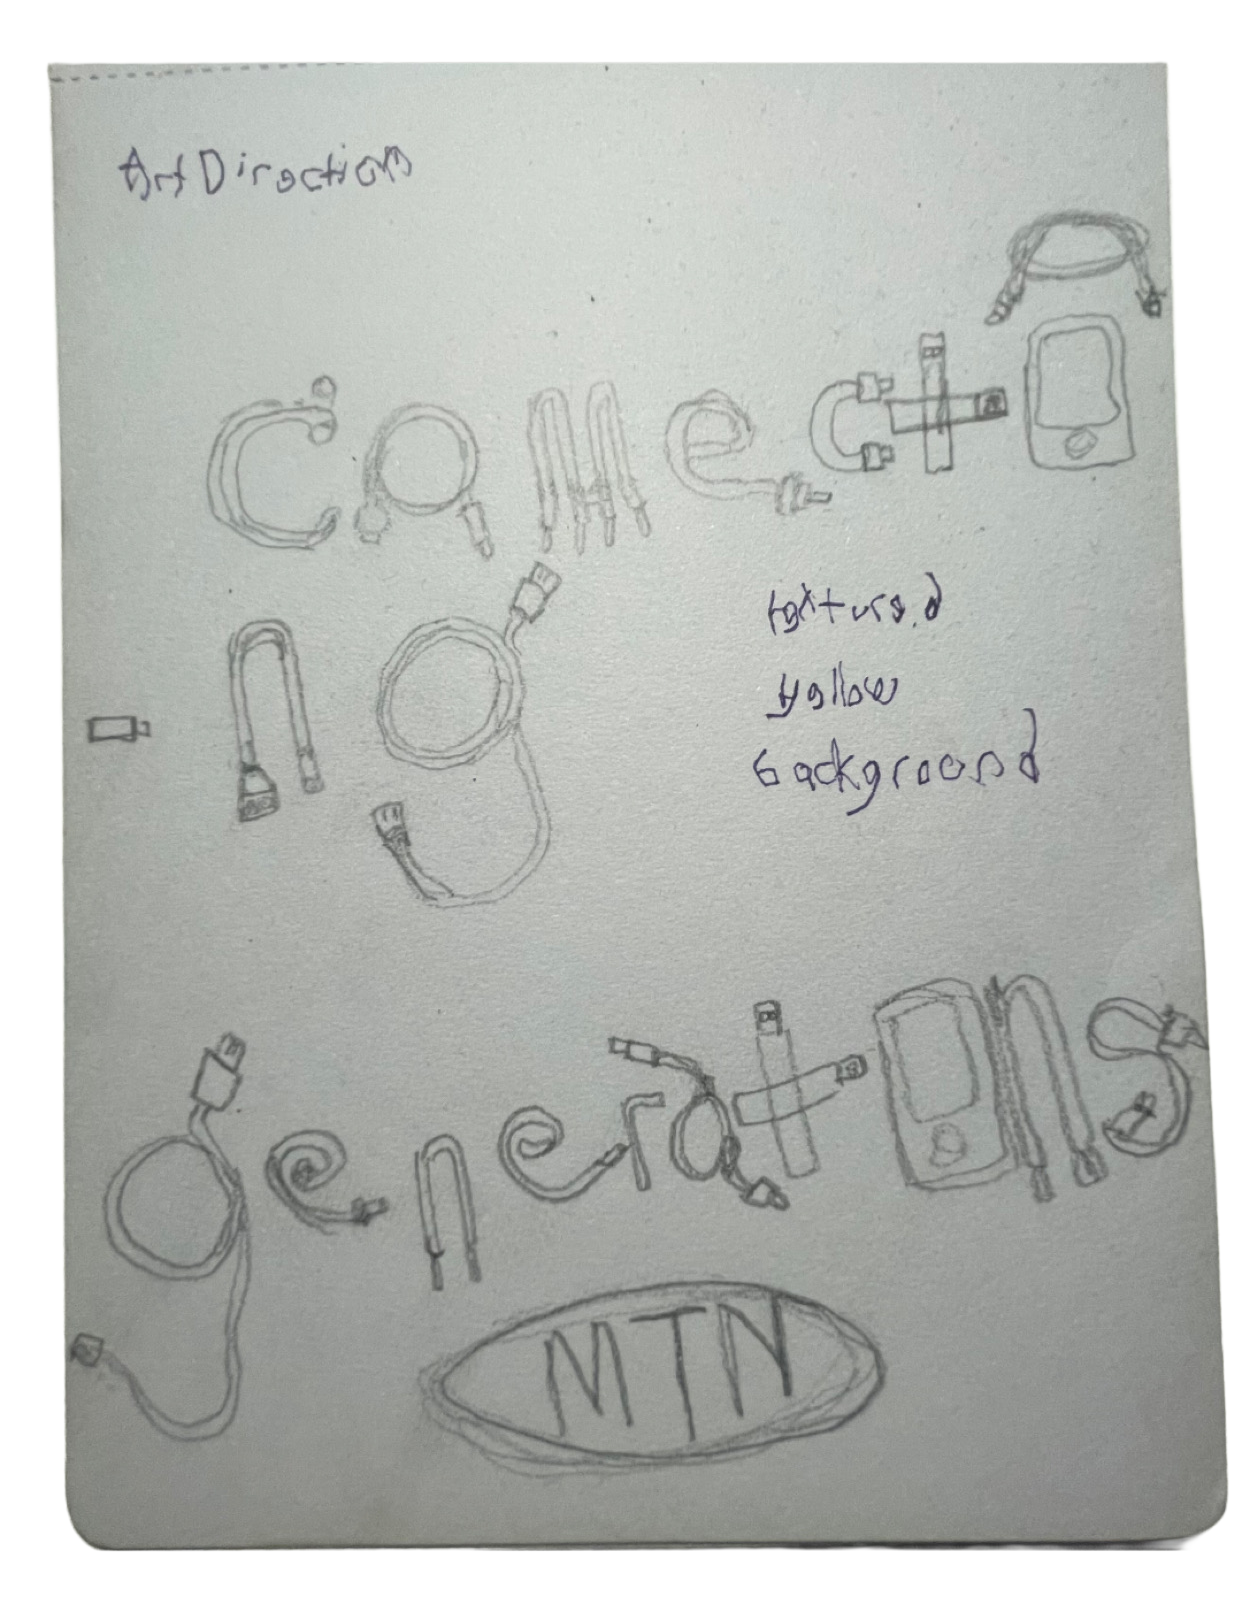 Art Direction
connecti
-ng
textured
yellow
background
generations
MTN